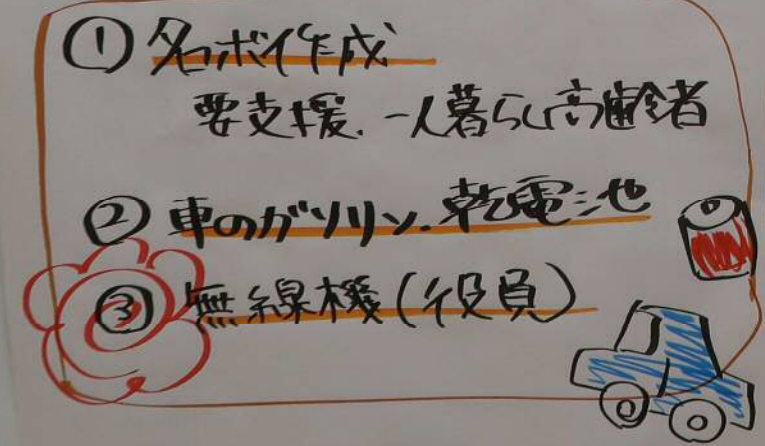 ① 名ボ作成
要支援、一人暮らし高齢者
② 車のガソリン、乾電池
③ 無線機(役員)